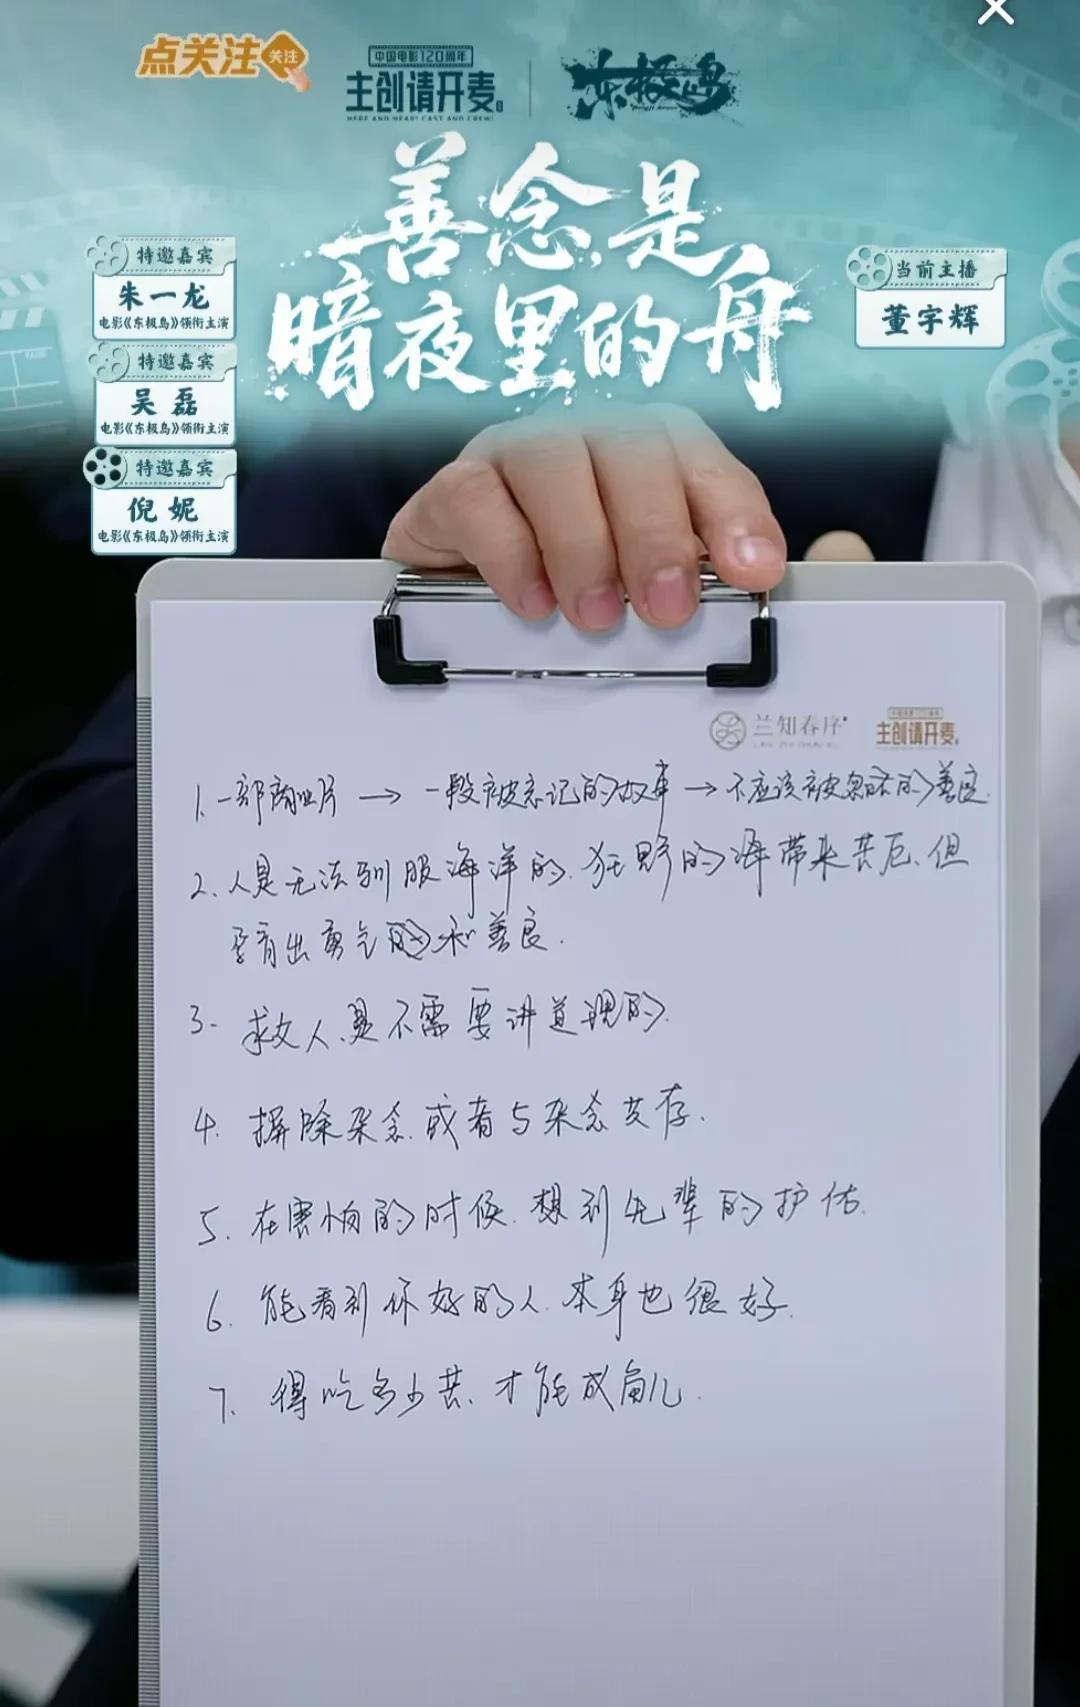 点关注 关注
中国电影120周年
主创请开麦
HERE AND HEAR! CAST AND CREW!
东极岛
善念,是
暗夜里的舟
特邀嘉宾
朱一龙
电影《东极岛》领衔主演
特邀嘉宾
吴磊
电影《东极岛》领衔主演
特邀嘉宾
倪妮
电影《东极岛》领衔主演
当前主播
董宇辉
兰知春序
主创请开麦
1. 一部商业片 → 一段被忘记的故事 → 不应该被忽略的善良.
2. 人是无法驯服海洋的.狂野的海带来苦厄.但
孕育出勇气的和善良.
3. 救人.是不需要讲道理的.
4. 摒除杂念.或者与杂念共存.
5. 在害怕的时候.想到先辈的护佑.
6. 能看到你好的人.本身也很好.
7. 得吃多少苦.才能成角儿.